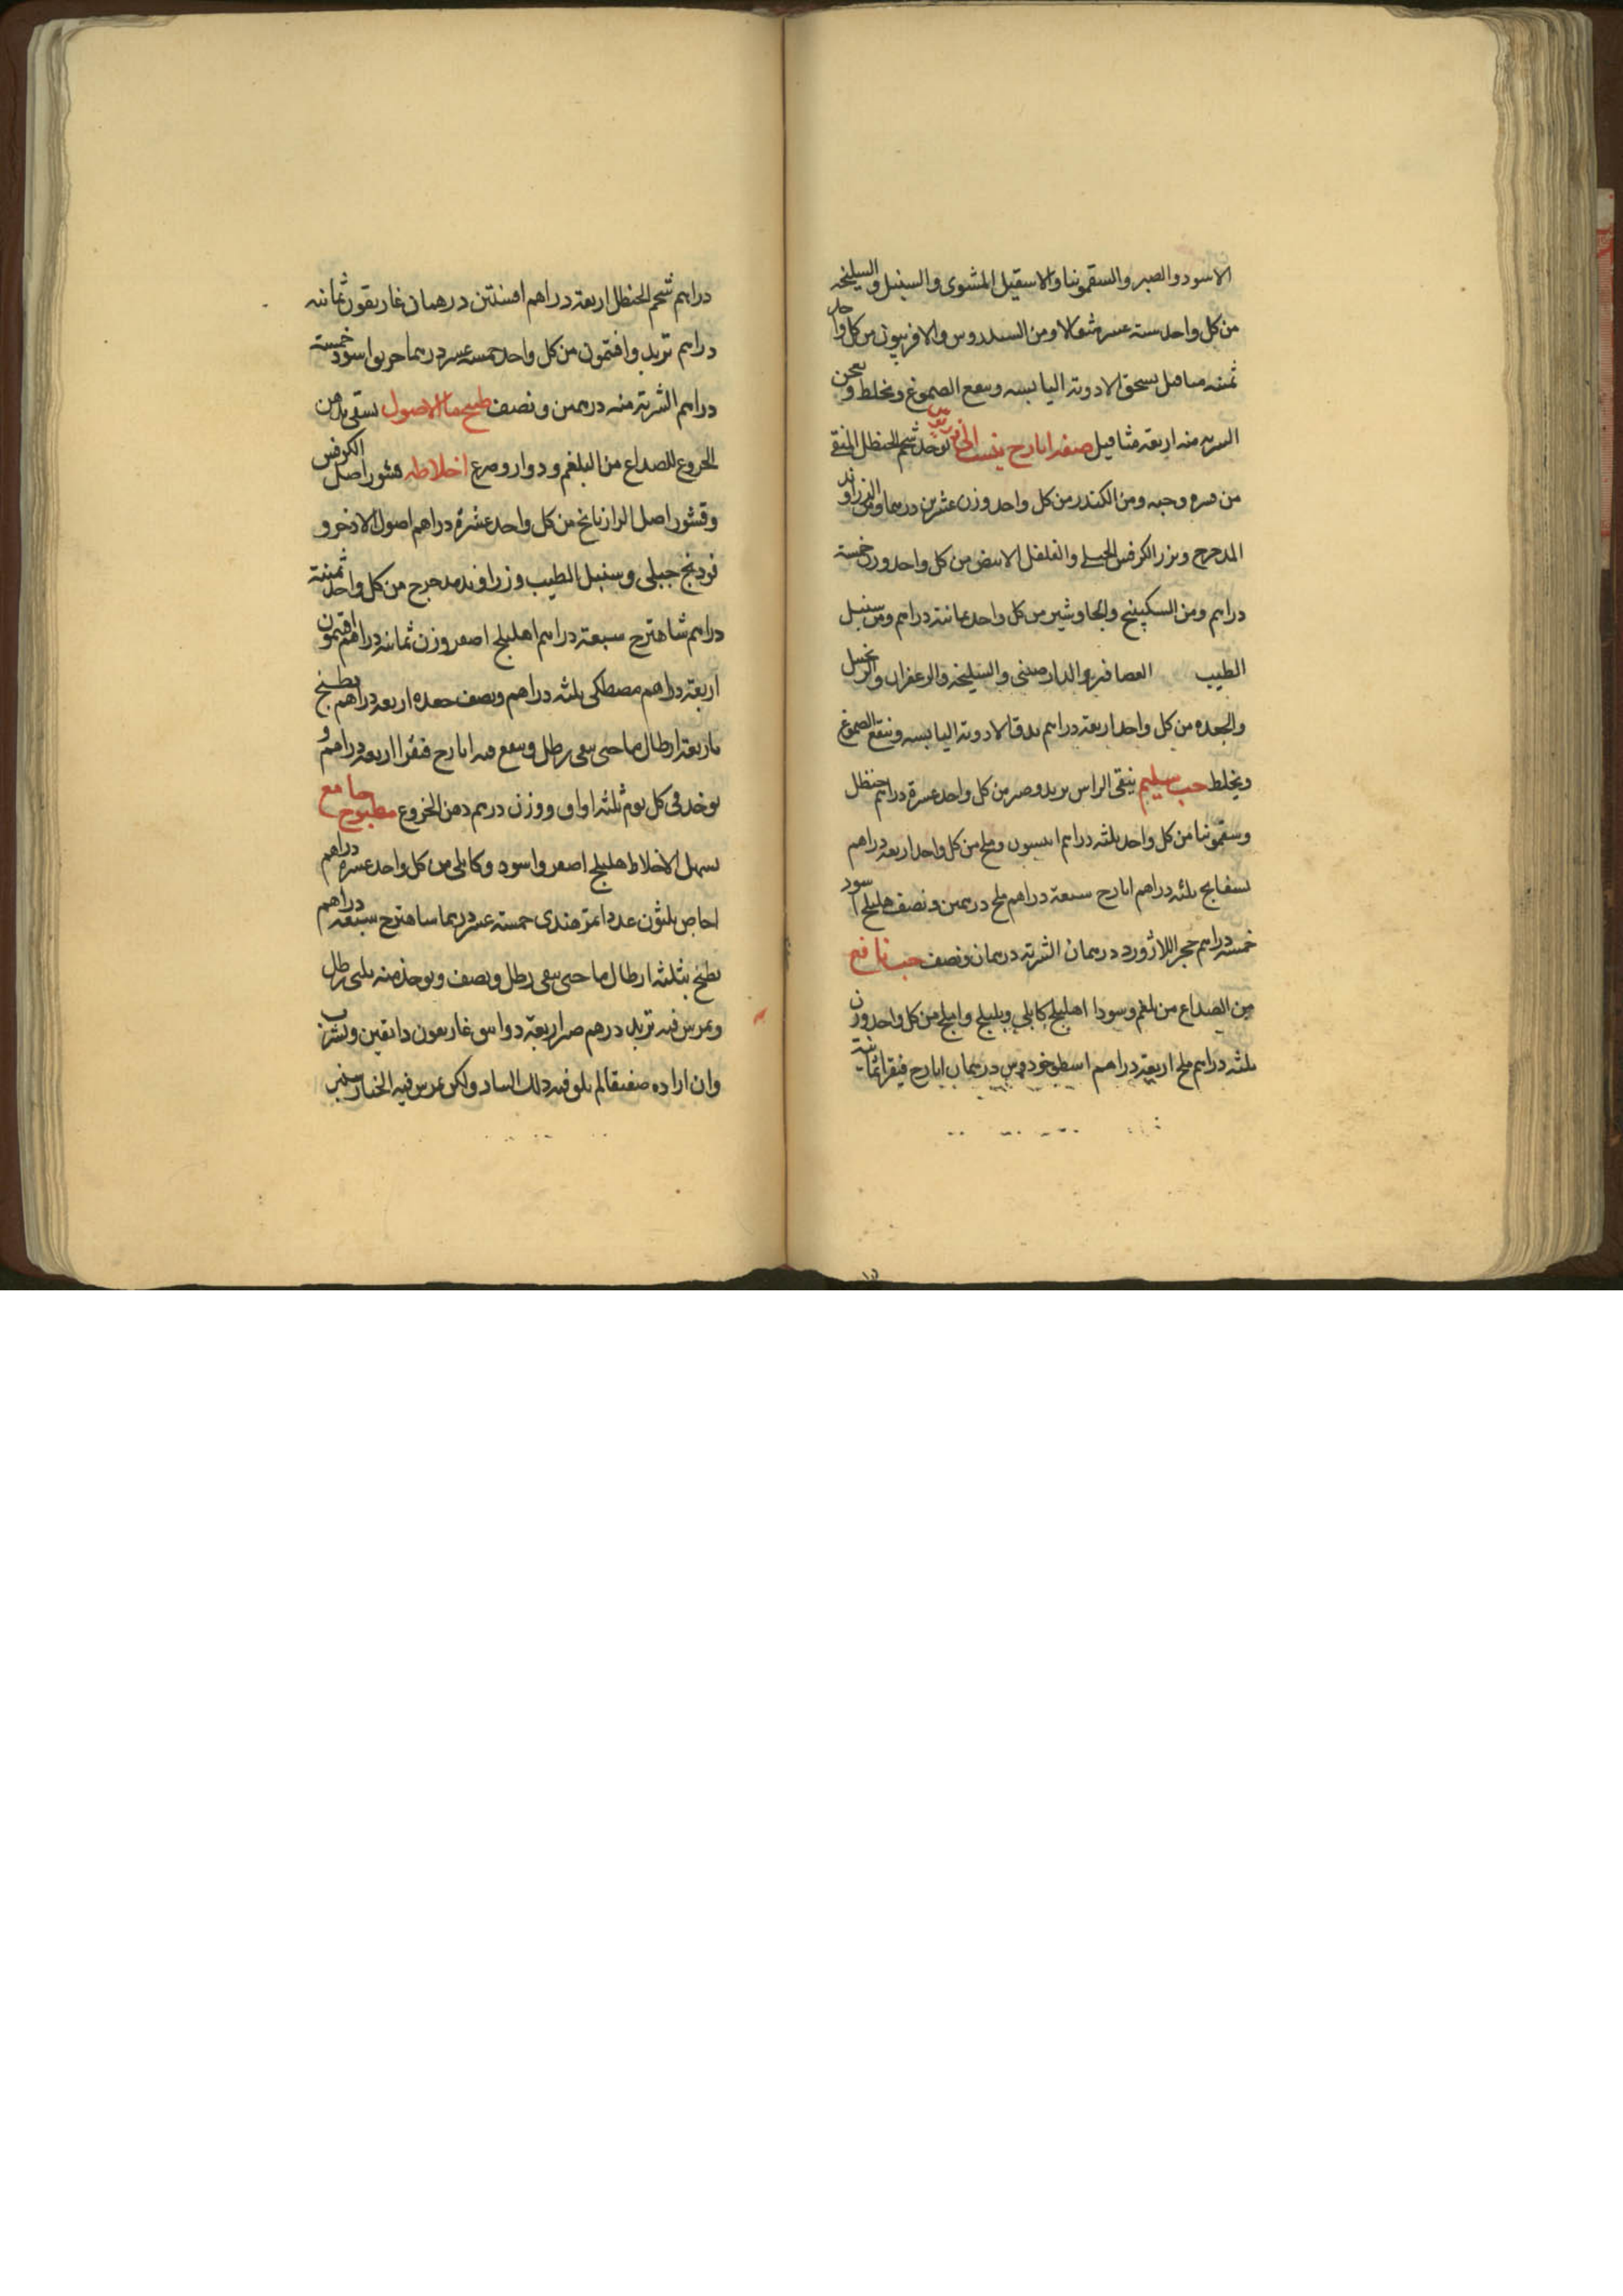 الاسود والصبر والسقمونيا والاسقيل المشوى والسنبل والسليخه
من كل واحد سته عشر مثقالا ومن السندروس والافربيون من كل واحد
ثمنه مثاقيل يسحق الادوية اليابسه وينقع الصموغ ويخلط ويعجن
الشربه منه اربعة مثاقيل صفه ايارج ينسب الى يوخذ شحم الحنظل المنقى
من قشره وحبه ومن الكندر من كل واحد وزن عشرين درهما ومن الزراوند
المدحرج وبزر الكرفس الجبلى والفلفل الابيض من كل واحد وزن خمسة
دراهم ومن السكبينج والجاوشير من كل واحد ثمانية دراهم ومن سنبل
الطيب العصافير والدارصينى والسليخه والزعفران والزنجبيل
والجعده من كل واحد اربعة دراهم يدق الادوية اليابسه وينقع الصموغ
ويخلط حب سليم ينقى الراس تربد وصبر من كل واحد عشرة دراهم حنظل
وسقمونيا من كل واحد ثلثه دراهم انيسون وملح من كل واحد اربعة دراهم
بسفايج ثلثه دراهم ايارج سبعة دراهم ملح درهمين ونصف هليلج اسود
خمسة دراهم حجر اللازورد درهمان الشربة درهمان ونصف حب نافع
من الصداع من بلغم وسودا اهليلج كابلي وبليلج واملج من كل واحد وزن
ثلثه دراهم ملح اربعة دراهم اسطوخودوس درهمان ايارج فيقرا ثمانية
دراهم شحم الحنظل اربعة دراهم افسنتين درهمان غاريقون ثمانية
دراهم تربد وافتمون من كل واحد خمسة عشر درهما خربق اسود خمسة
دراهم الشربة منه درهمين ونصف طبيخ ما الاصول يسقى بدهن
الخروع للصداع من البلغم ودوار وصرع اخلاطه قشور اصل الكرفس
وقشور اصل الرازيانج من كل واحد عشرة دراهم اصول الاذخر و
فودنج جبلى وسنبل الطيب وزراوند مدحرج من كل واحد ثمنية
دراهم شاهترج سبعة دراهم اهليلج اصفر وزن ثمانية دراهم افتمون
اربعة دراهم مصطكى ثلثه دراهم ونصف جعده اربعة دراهم يطبخ
باربعة ارطال ما حتى يبقى رطل وينقع فيه ايارج فيقرا اربعة دراهم و
يوخذ فى كل يوم ثلثه اواق ووزن درهم دهن الخروع مطبوخ جامع
يسهل الاخلاط هليلج اصفر واسود وكابلى من كل واحد عشرة دراهم
اجاص ثلثون عددا تمر هندى خمسة عشر درهما شاهترج سبعة دراهم
يطبخ بثلثه ارطال ما حتى يبقى رطل ونصف ويوخذ منه ثلثى رطل
ويمرس فيه تربد درهم صبر اربعة دوانيق غاريقون دانقين ويشرب
وان اراده ضعيفا لم يلق فيه ذلك ولكن يمرس فيه الخيارشنبر